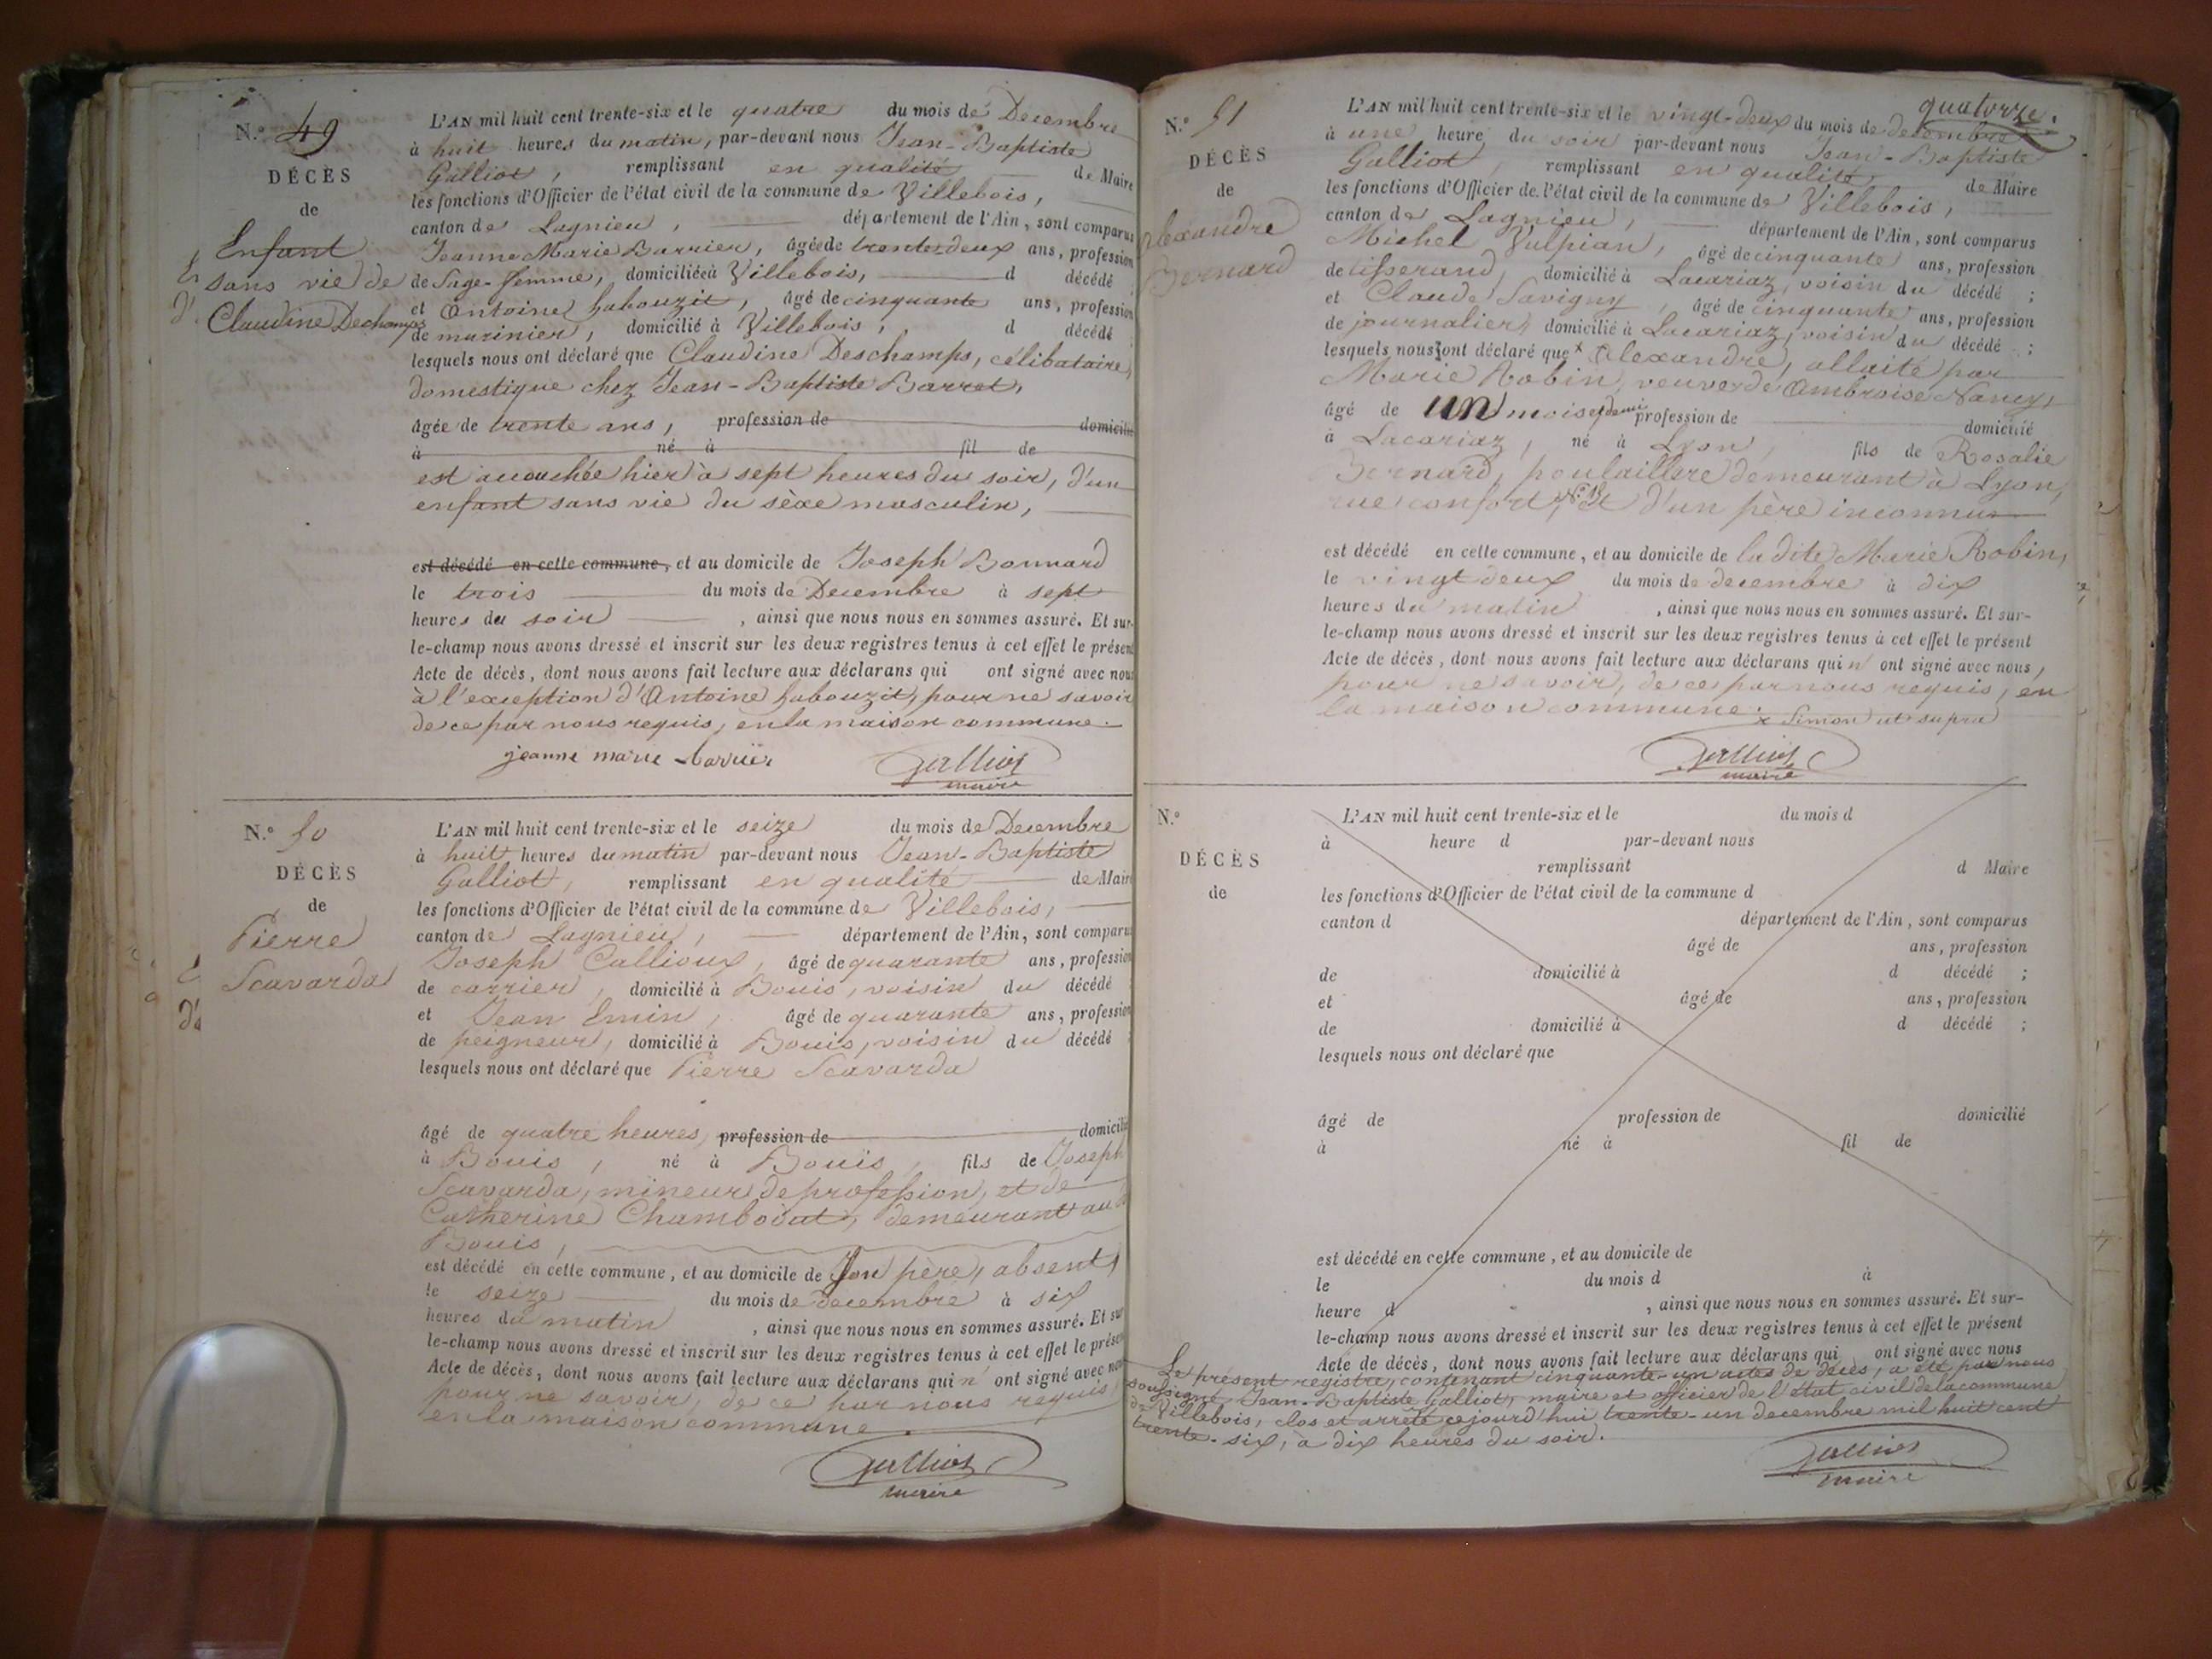 N.° 49
DÉCÈS
de
Enfant
sans vie de
Claudine Dechamps
L'AN mil huit cent trente-six et le quatre du mois de Decembre
à huit heures du matin, par-devant nous Jean-Baptiste
Galliot, remplissant en qualité de Maire
les fonctions d'Officier de l'état civil de la commune de Villebois,
canton de Lagnieu, département de l'Ain, sont comparus
Jeanne Marie Barrier, âgée de trente-deux ans, profession
de Sage-femme, domiciliée à Villebois, d décédé
et Antoine habouzit, âgé de cinquante ans, profession
de marinier, domicilié à Villebois, d décédé
lesquels nous ont déclaré que Claudine Deschamps, célibataire,
domestique chez Jean-Baptiste Barret,
âgée de trente ans, profession de domicilié
à né à fil de
est accouchée hier à sept heures du soir, d'un
enfant sans vie du sèxe masculin,
est décédé en cette commune, et au domicile de Joseph Bonnard
le trois du mois de Decembre à sept
heures du soir, ainsi que nous nous en sommes assuré. Et sur-
le-champ nous avons dressé et inscrit sur les deux registres tenus à cet effet le présent
Acte de décès, dont nous avons fait lecture aux déclarans qui ont signé avec nous
à l'exception d'Antoine habouzit, pour ne savoir
de ce par nous requis, en la maison commune.
jeanne marie barrier Galliot
maire
N.° 50
DÉCÈS
de
Pierre
Scavarda
L'AN mil huit cent trente-six et le seize du mois de Decembre
à huit heures du matin par-devant nous Jean-Baptiste
Galliot, remplissant en qualité de Maire
les fonctions d'Officier de l'état civil de la commune de Villebois,
canton de Lagnieu, département de l'Ain, sont comparus
Joseph Callioux, âgé de quarante ans, profession
de carrier, domicilié à Bouis, voisin du décédé
et Jean Emin, âgé de quarante ans, profession
de peigneur, domicilié à Bouis, voisin du décédé
lesquels nous ont déclaré que Pierre Scavarda
âgé de quatre heures, profession de domicilié
à Bouis, né à Bouis, fils de Joseph
Scavarda, mineur de profession, et de
Catherine Chambodut, demeurant au
Bouis,
est décédé en cette commune, et au domicile de son père, absent,
le seize du mois de decembre à six
heures du matin, ainsi que nous nous en sommes assuré. Et sur
le-champ nous avons dressé et inscrit sur les deux registres tenus à cet effet le présent
Acte de décès, dont nous avons fait lecture aux déclarans qui n' ont signé avec nous
pour ne savoir, de ce par nous requis
en la maison commune.
Galliot
maire
quatorze.
N.° 51
DÉCÈS
de
Alexandre
Bernard
L'AN mil huit cent trente-six et le vingt-deux du mois de decembre
à une heure du soir par-devant nous Jean-Baptiste
Galliot, remplissant en qualité de Maire
les fonctions d'Officier de l'état civil de la commune de Villebois,
canton de Lagnieu, département de l'Ain, sont comparus
Michel Vulpian, âgé de cinquante ans, profession
de tisserand, domicilié à Lacariaz, voisin du décédé ;
et Claude Savigny, âgé de cinquante ans, profession
de journalier, domicilié à Lacariaz, voisin du décédé ;
lesquels nous ont déclaré que x Alexandre, allaité par
Marie Robin, veuve de Ambroise Nancy,
âgé de un mois et demi profession de domicilié
à Lacariaz, né à Lyon, fils de Rosalie
Bernard, poulaillère demeurant à Lyon,
rue confort, et d'un père inconnu
est décédé en cette commune, et au domicile de ladite Marie Robin,
le vingt deux du mois de decembre à dix
heures du matin, ainsi que nous nous en sommes assuré. Et sur-
le-champ nous avons dressé et inscrit sur les deux registres tenus à cet effet le présent
Acte de décès, dont nous avons fait lecture aux déclarans qui n' ont signé avec nous,
pour ne savoir, de ce par nous requis, en
la maison commune. x Simon ut supra
Galliot
maire
N.°
DÉCÈS
de
L'AN mil huit cent trente-six et le du mois d
à heure d par-devant nous
remplissant d Maire
les fonctions d'Officier de l'état civil de la commune d
canton d département de l'Ain, sont comparus
âgé de ans, profession
de domicilié à d décédé ;
et âgé de ans, profession
de domicilié à d décédé ;
lesquels nous ont déclaré que
âgé de profession de domicilié
à né à fil de
est décédé en cette commune, et au domicile de
le du mois d à
heure d , ainsi que nous nous en sommes assuré. Et sur-
le-champ nous avons dressé et inscrit sur les deux registres tenus à cet effet le présent
Acte de décès, dont nous avons fait lecture aux déclarans qui ont signé avec nous
Le présent registre, contenant cinquante-un actes de décès, a été par nous
soussigné, Jean-Baptiste Galliot, maire et officier de l'état civil de la commune
de Villebois, clos et arrêté cejourd'hui trente-un decembre mil huit cent
trente-six, à dix heures du soir.
Galliot
maire